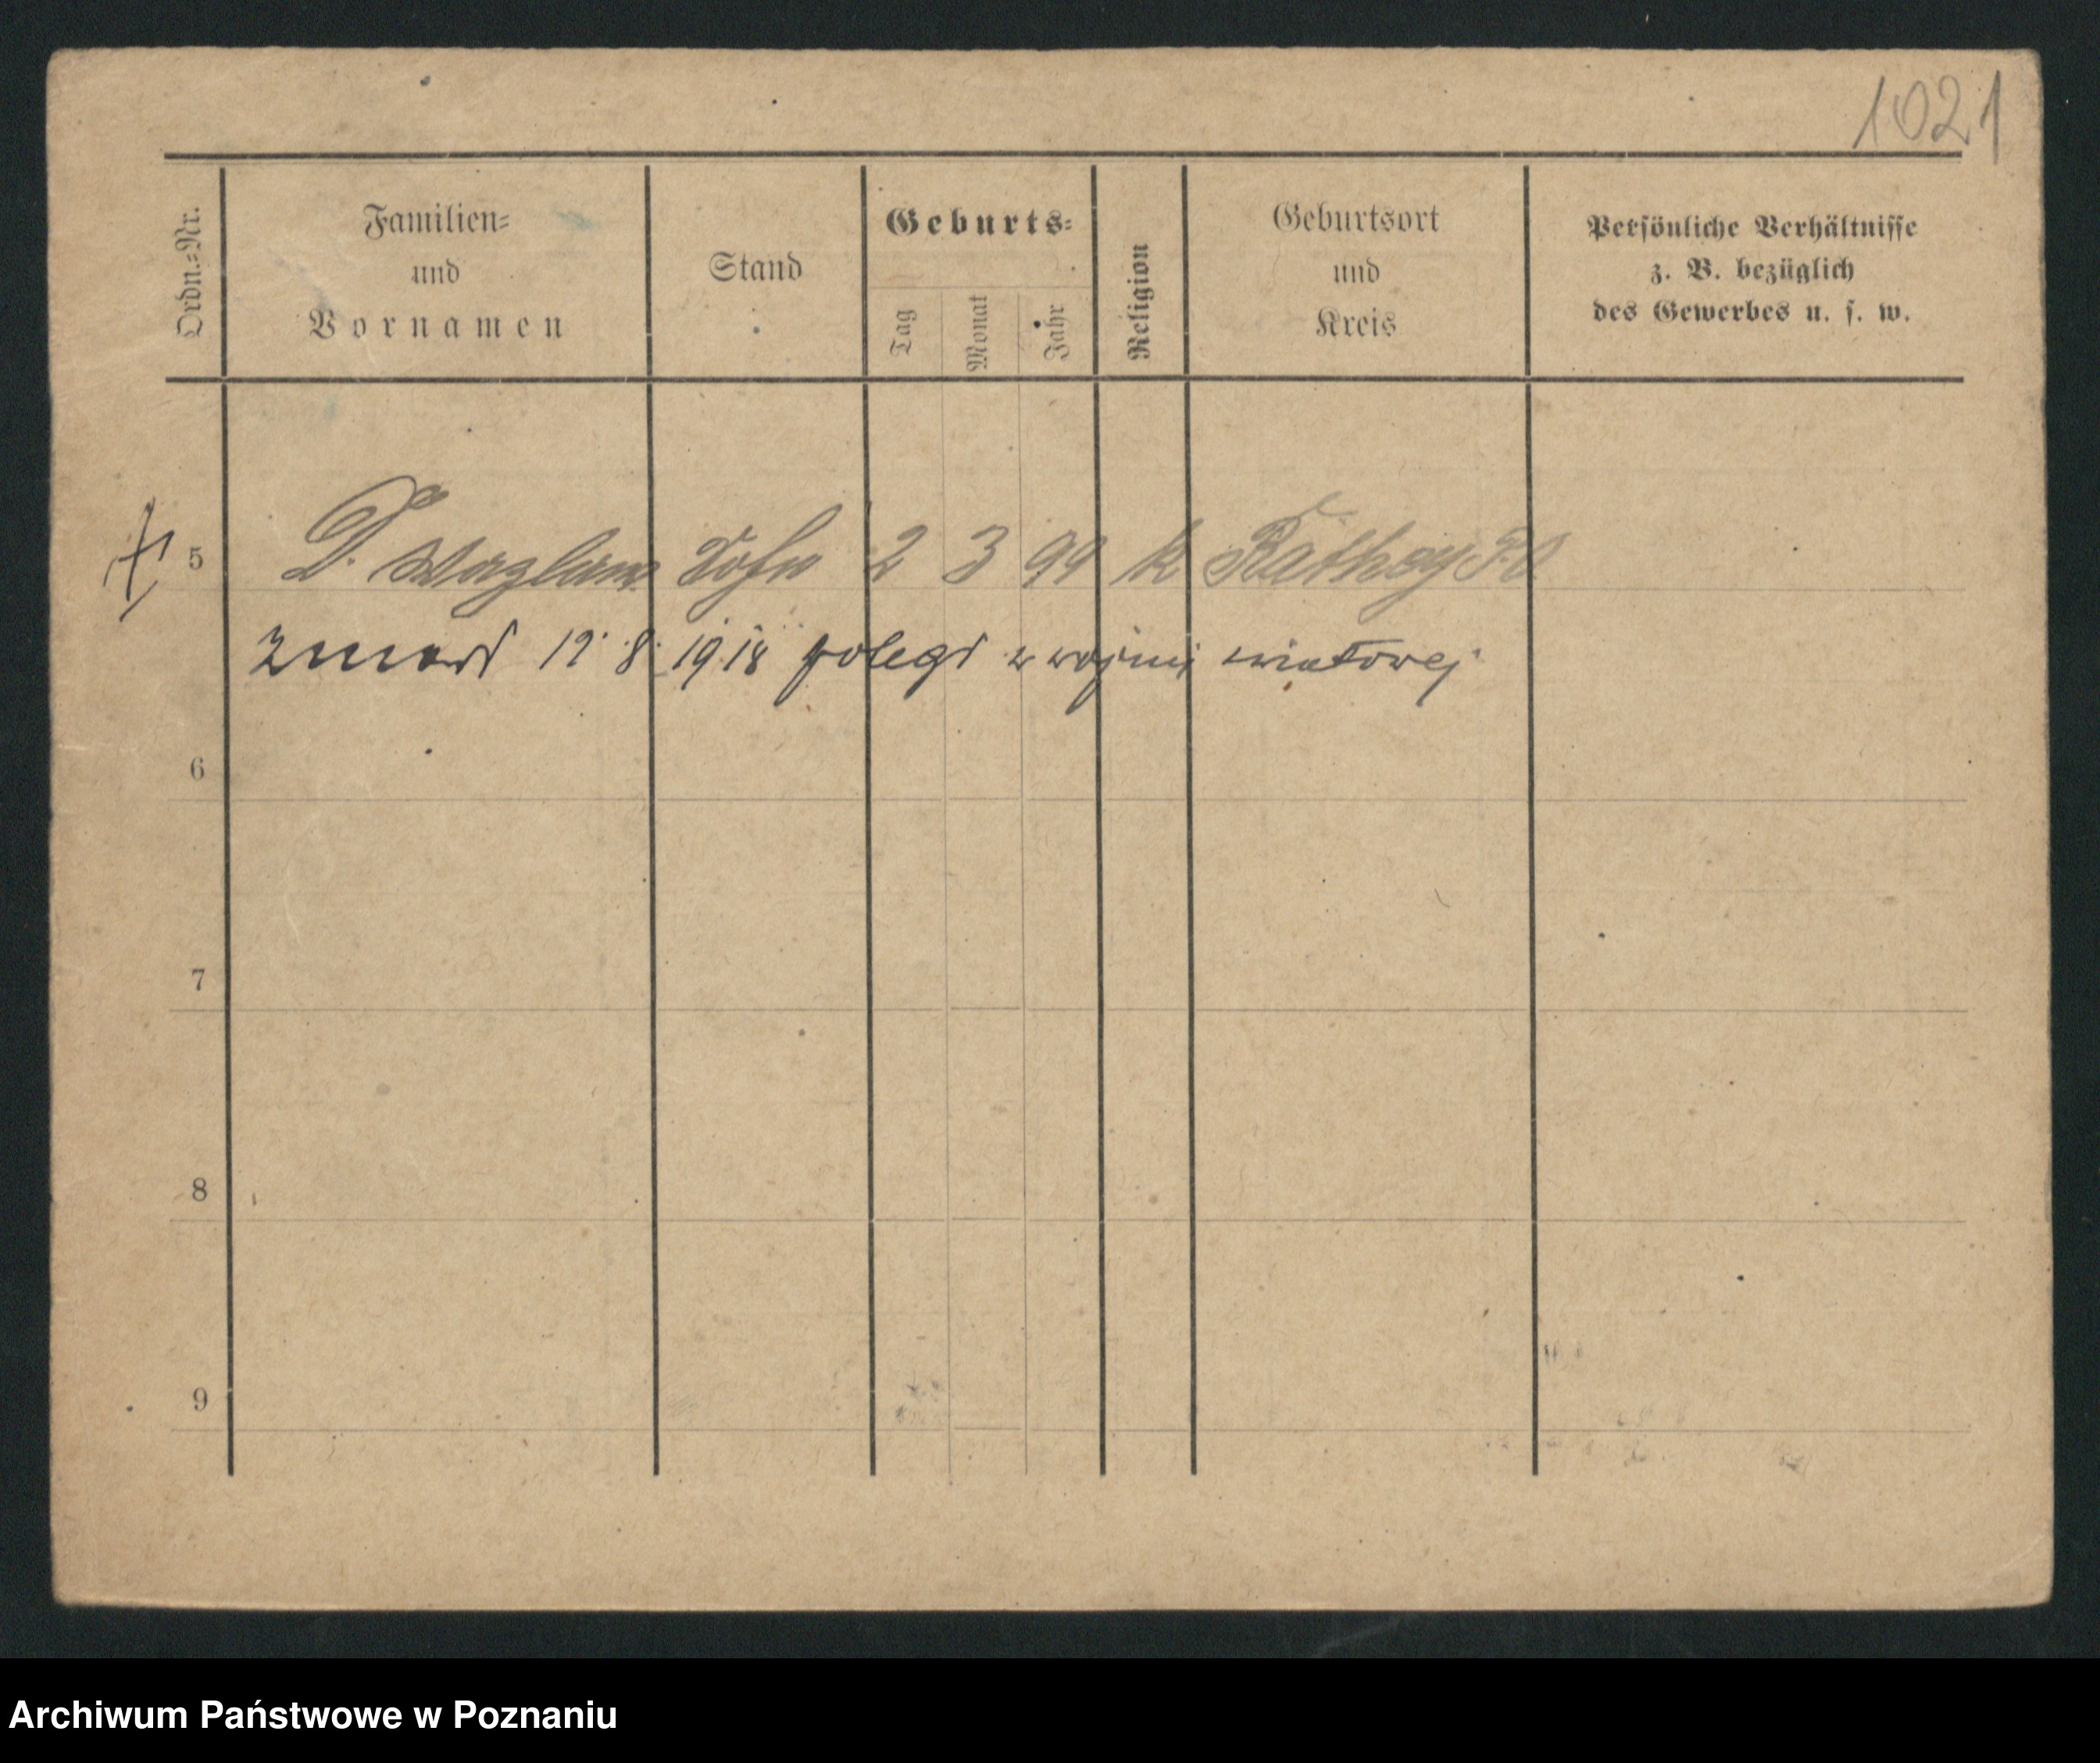 1021
Ordn.-Nr.
Familien-
und
Vornamen
Stand
Geburts-
Tag
Monat
Jahr
Religion
Geburtsort
und
Kreis
Persönliche Verhältnisse
z. B. bezüglich
des Gewerbes u. s. w.
5 D. Wazlaw Sohn 2 3 99 k
zmarł 12 8 1918 poległ w wojnie światowej
6
7
8
9
Archiwum Państwowe w Poznaniu